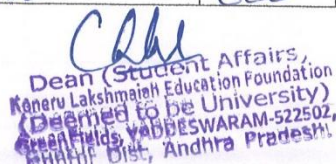 Dean (Student Affairs,
Koneru Lakshmaiah Education Foundation
(Deemed to be University)
Green Fields, VADDESWARAM-522502,
Dist, Andhra Pradesh